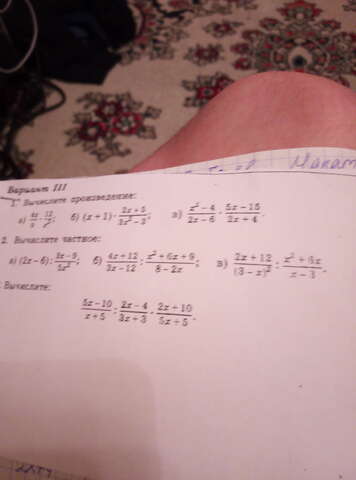 Вариант III
1. Вычислите произведение:
а) 4x/3 · 12/x²; б) (x + 1) · (2x + 5)/(3x² − 3); в) (x² − 4)/(2x − 6) · (5x − 15)/(2x + 4).
2. Вычислите частное:
а) (2x − 6) : (3x − 9)/(5x²); б) (4x + 12)/(3x − 12) : (x² + 6x + 9)/(8 − 2x); в) (2x + 12)/(3 − x)² : (x² + 6x)/(x − 3).
Вычислите:
(5x − 10)/(x + 5) : (2x − 4)/(3x + 3) · (2x + 10)/(5x + 5).